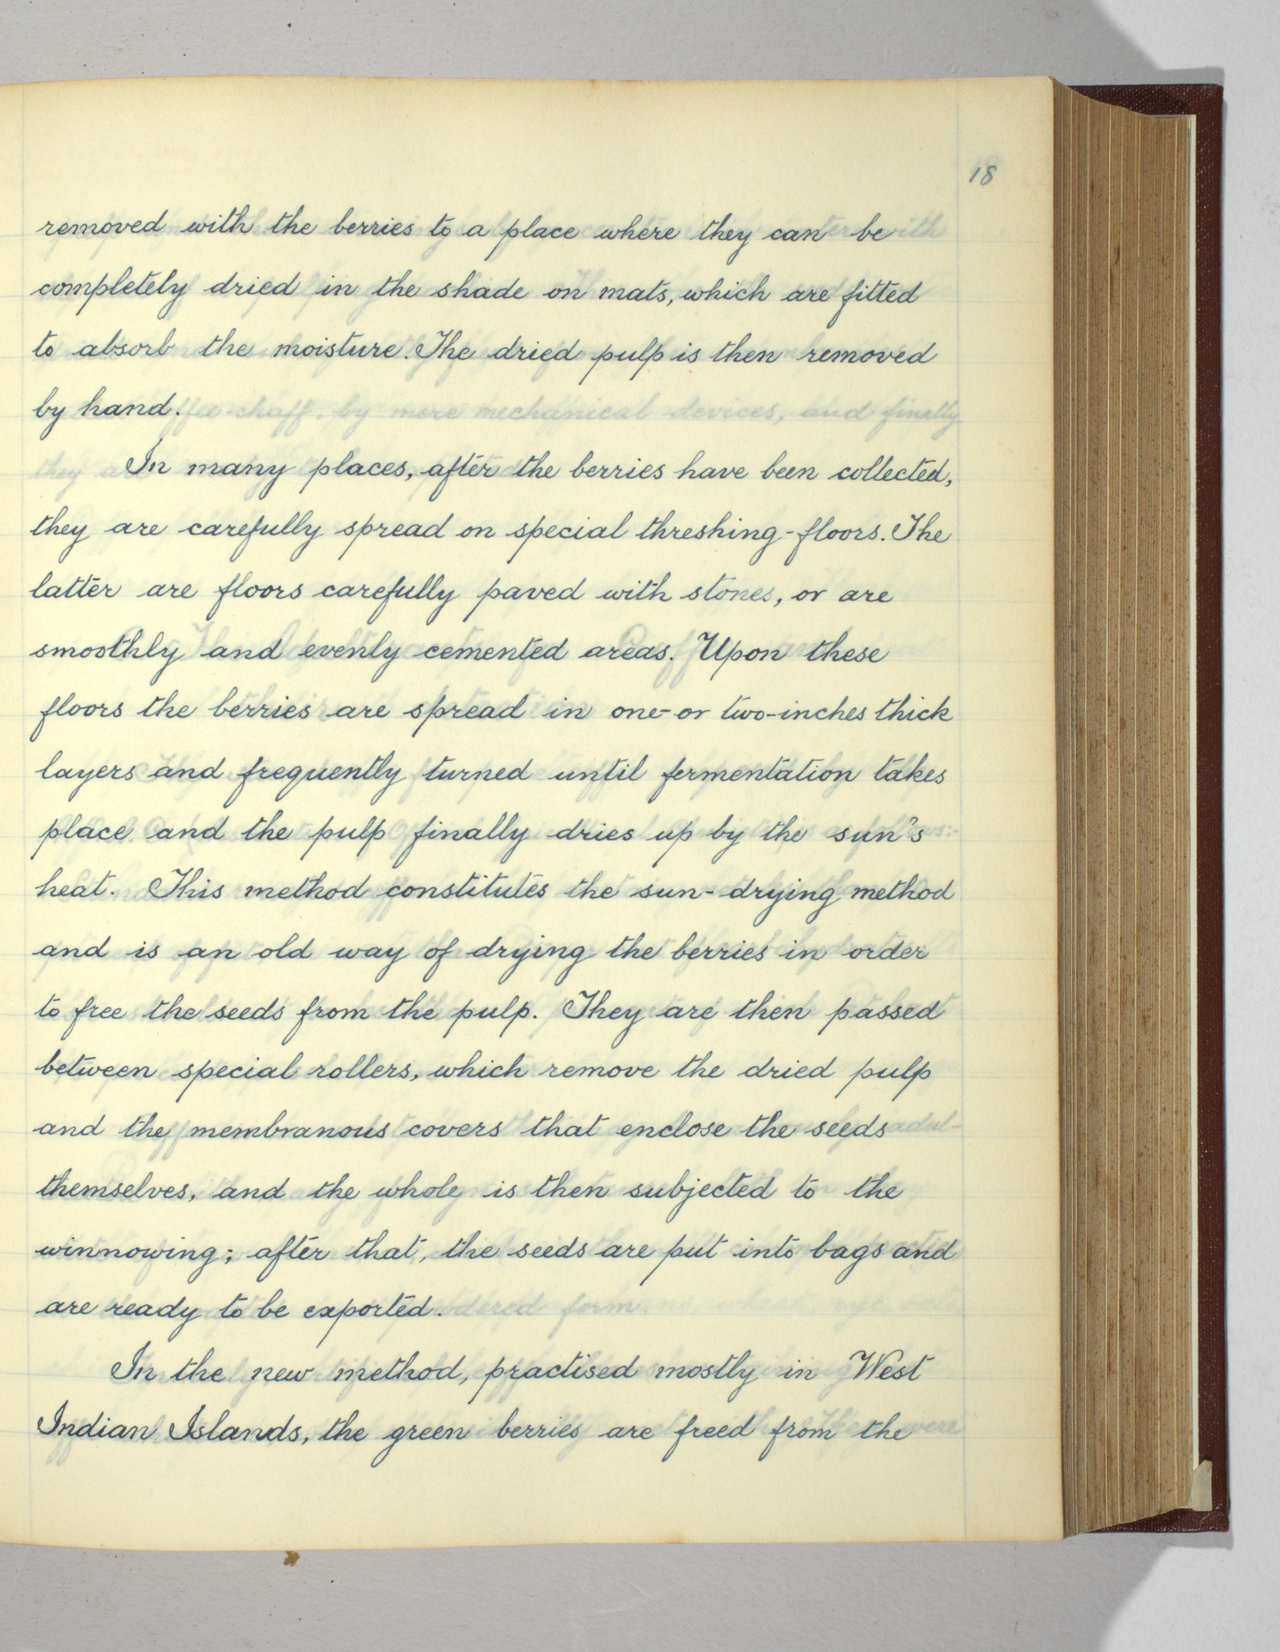 18
removed with the berries to a place where they can be
completely dried in the shade on mats, which are fitted
to absorb the moisture. The dried pulp is then removed
by hand.
In many places, after the berries have been collected,
they are carefully spread on special threshing-floors. The
latter are floors carefully paved with stones, or are
smoothly and evenly cemented areas. Upon these
floors the berries are spread in one-or two-inches thick
layers and frequently turned until fermentation takes
place and the pulp finally dries up by the sun's
heat. This method constitutes the sun-drying method
and is an old way of drying the berries in order
to free the seeds from the pulp. They are then passed
between special rollers, which remove the dried pulp
and the membranous covers that enclose the seeds
themselves, and the whole is then subjected to the
winnowing; after that, the seeds are put into bags and
are ready to be exported.
In the new method, practised mostly in West
Indian Islands, the green berries are freed from the